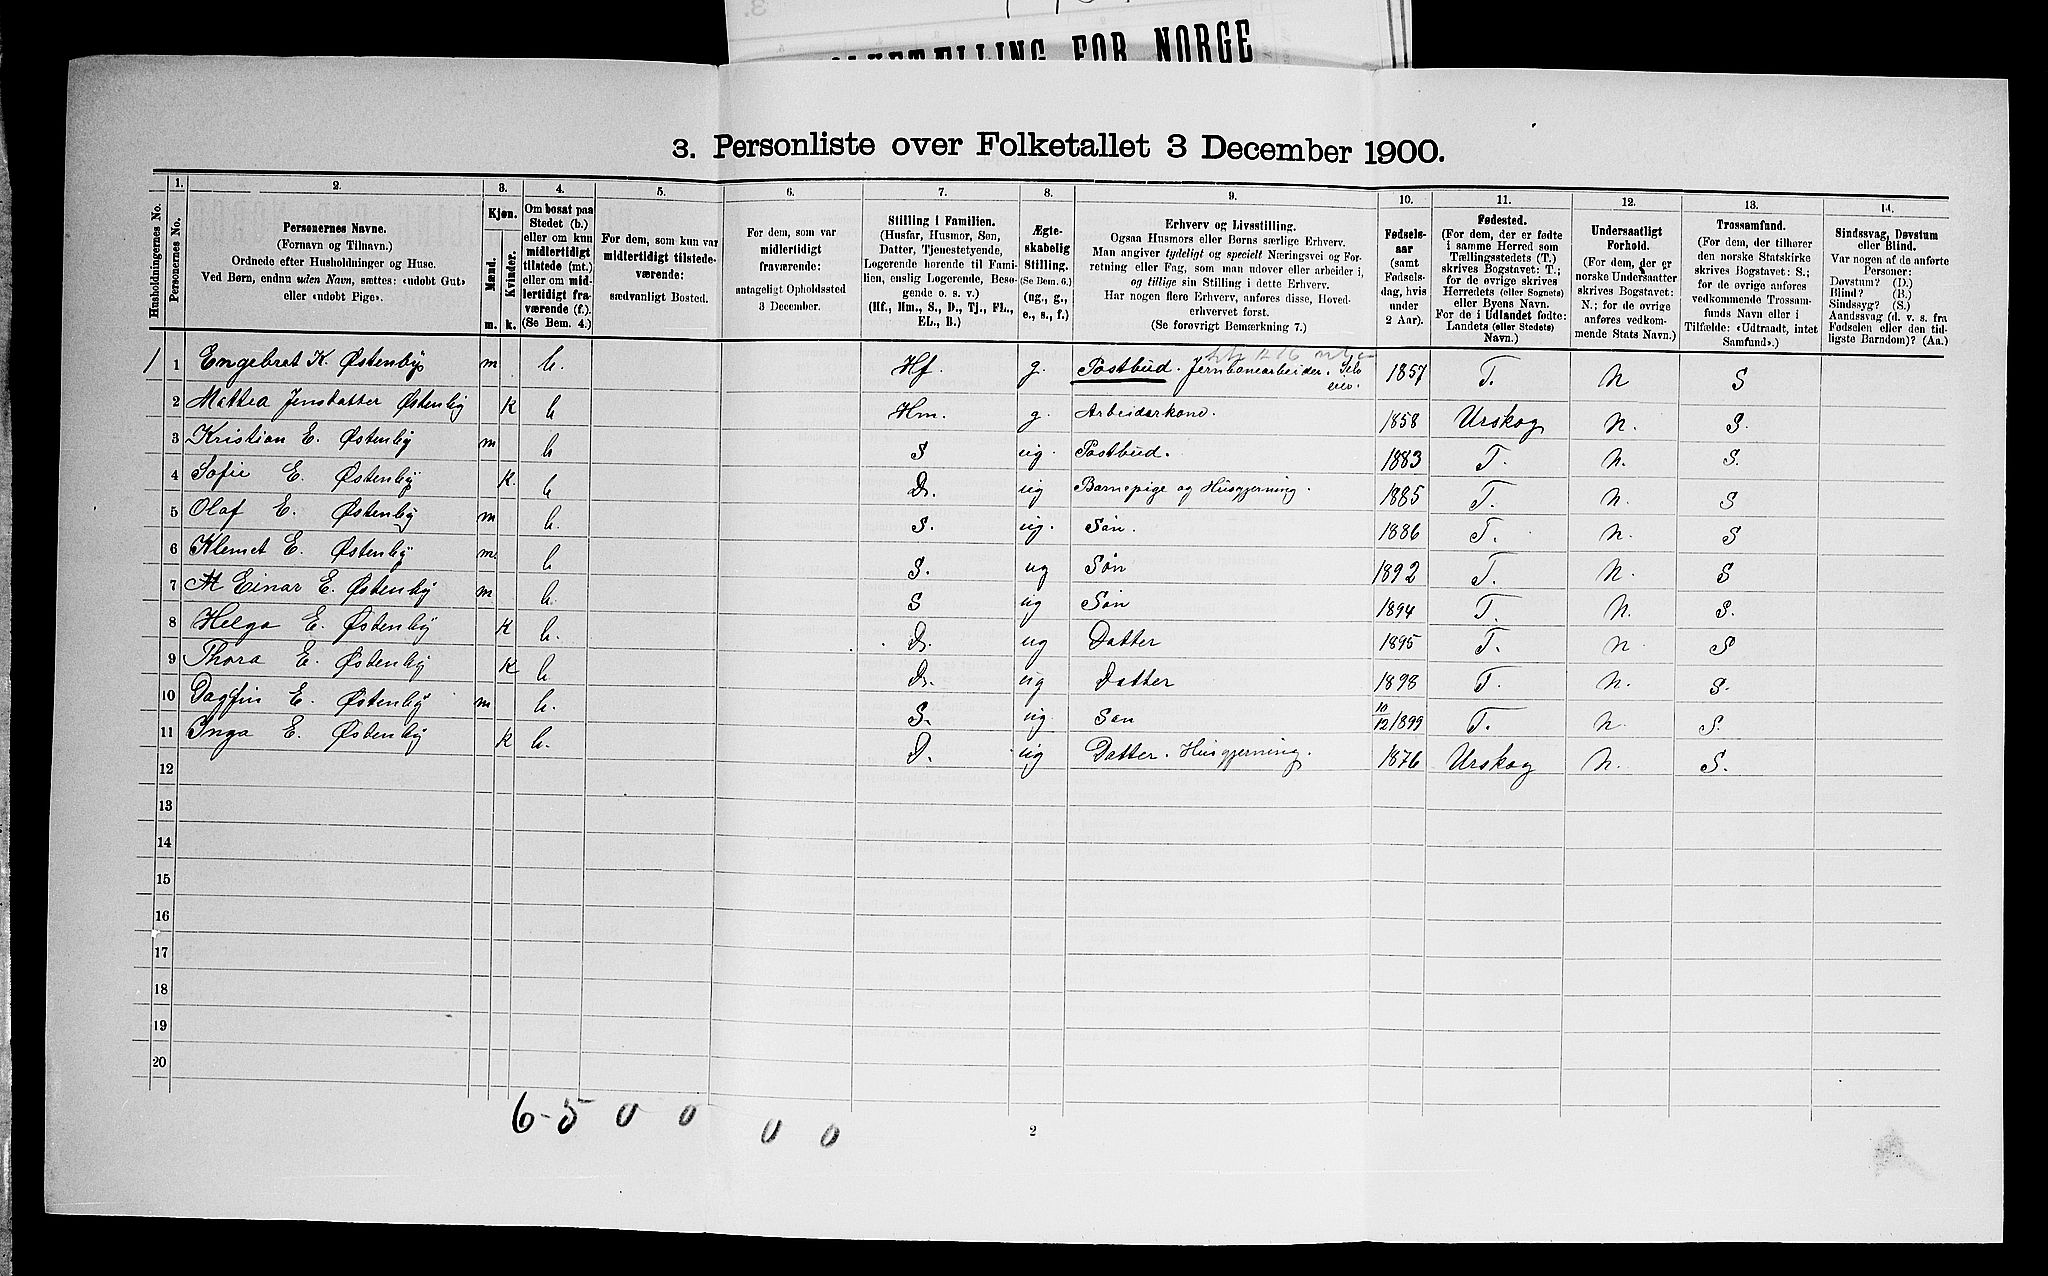 FOR NORGE
3. Personliste over Folketallet 3 December 1900.
Husholdningernes No.
1. Personernes No.
2. Personernes Navne.
(Fornavn og Tilnavn.)
Ordnede efter Husholdninger og Huse.
Ved Børn, endnu uden Navn, sættes: «udobt Gut»
eller «udobt Pige».
3. Kjøn.
Mænd. m.
Kvinder. k.
4. Om bosat paa
Stedet (b.)
eller om kun
midlertidigt
tilstede (mt.)
eller om mid-
lertidigt fra-
værende (f.).
(Se Bem. 4.)
5. For dem, som kun var
midlertidigt tilstede-
værende:
sædvanligt Bosted.
6. For dem, som var
midlertidigt
fraværende:
antageligt Opholdssted
3 December.
7. Stilling i Familien.
(Husfar, Husmor, Søn,
Datter, Tjenestetyende,
Logerende hørende til Fami-
lien, enslig Logerende, Besø-
gende o. s. v.)
(Hf., Hm., S., D., Tj., FL.,
EL., B.)
8. Ægte-
skabelig
Stilling.
(Se Bem. 6.)
(ug., g.,
e., s., f.)
9. Erhverv og Livsstilling.
Ogsaa Husmors eller Børns særlige Erhverv.
Man angiver tydeligt og specielt Næringsvei og For-
retning eller Fag, som man udover eller arbeider i,
og tillige sin Stilling i dette Erhverv.
Har nogen flere Erhverv, anføres disse, Hoved-
erhvervet først.
(Se forøvrigt Bemærkning 7.)
10. Fødsels-
aar
(samt
Fødsels-
dag, hvis
under
2 Aar).
11. Fødested.
(For dem, der er fødte
i samme Herred som
Tællingsstedets (T.)
skrives Bogstavet: T.;
for de øvrige skrives
Herredets (eller Sognets)
eller Byens Navn.
For de i Udlandet fødte:
Landets (eller Stedets)
Navn.)
12. Undersaatligt
Forhold.
(For dem, der er
norske Undersaatter
skrives Bogstavet:
N.; for de øvrige
anføres vedkom-
mende Stats Navn.)
13. Trossamfund.
(For dem, der tilhører
den norske Statskirke
skrives Bogstavet: S.;
for de øvrige anføres
vedkommende Trossam-
funds Navn eller i
Tilfælde: «Udtraadt, intet
Samfund».)
14. Sindssvag, Døvstum
eller Blind.
Var nogen af de anførte
Personer:
Døvstum? (D.)
Blind? (B.)
Sindssyg? (S.)
Aandssvag (d. v. s. fra
Fødselen eller den tid-
ligste Barndom)? (Aa.)
1 1 Engebret K. Østenby m b. Hf. g. Postbud. Jernbanearbeider. 1857 T. N S
2 Mattea Jensdatter Østenby k b Hm. g. Arbeiderkone. 1858 Urskog N. S.
3 Kristian E. Østenby m b S ug. Postbud. 1883 T. N. S.
4 Sofie E. Østenby k. b D. ug Barnepige og Husgjerning. 1885 T. N. S
5 Olaf E. Østenby m b. S. ug. Søn. 1886 T. N. S
6 Klemet E. Østenby m. b S. ug Søn 1892 T. N. S
7 Einar E. Østenby m b. S ug Søn 1894 T. N. S.
8 Helga E. Østenby k b. D. ug Datter 1895 T. N. S
9 Thora E. Østenby k b D. ug Datter 1898 T. N. S.
10 Dagfin E. Østenby m b. S. ug. Søn 10/12 1899 T. N. S.
11 Inga E. Østenby k b. D. ug Datter. Husgjerning. 1876 Urskog N. S.
12
13
14
15
16
17
18
19
20
6-5 0 0 0 0
2